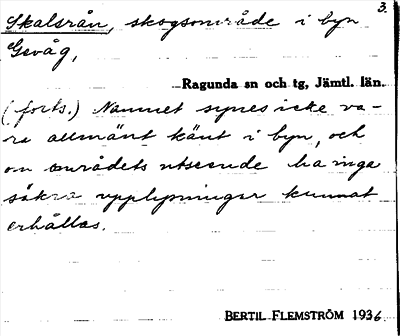 3.
Skalsrån, skogsområde i byn
Gevåg,
Ragunda sn och tg, Jämtl. län.
(forts.) Namnet synes icke va-
ra allmänt känt i byn, och
om områdets utseende ha inga
säkra upplysningar kunnat
erhållas.
BERTIL FLEMSTRÖM 1936.